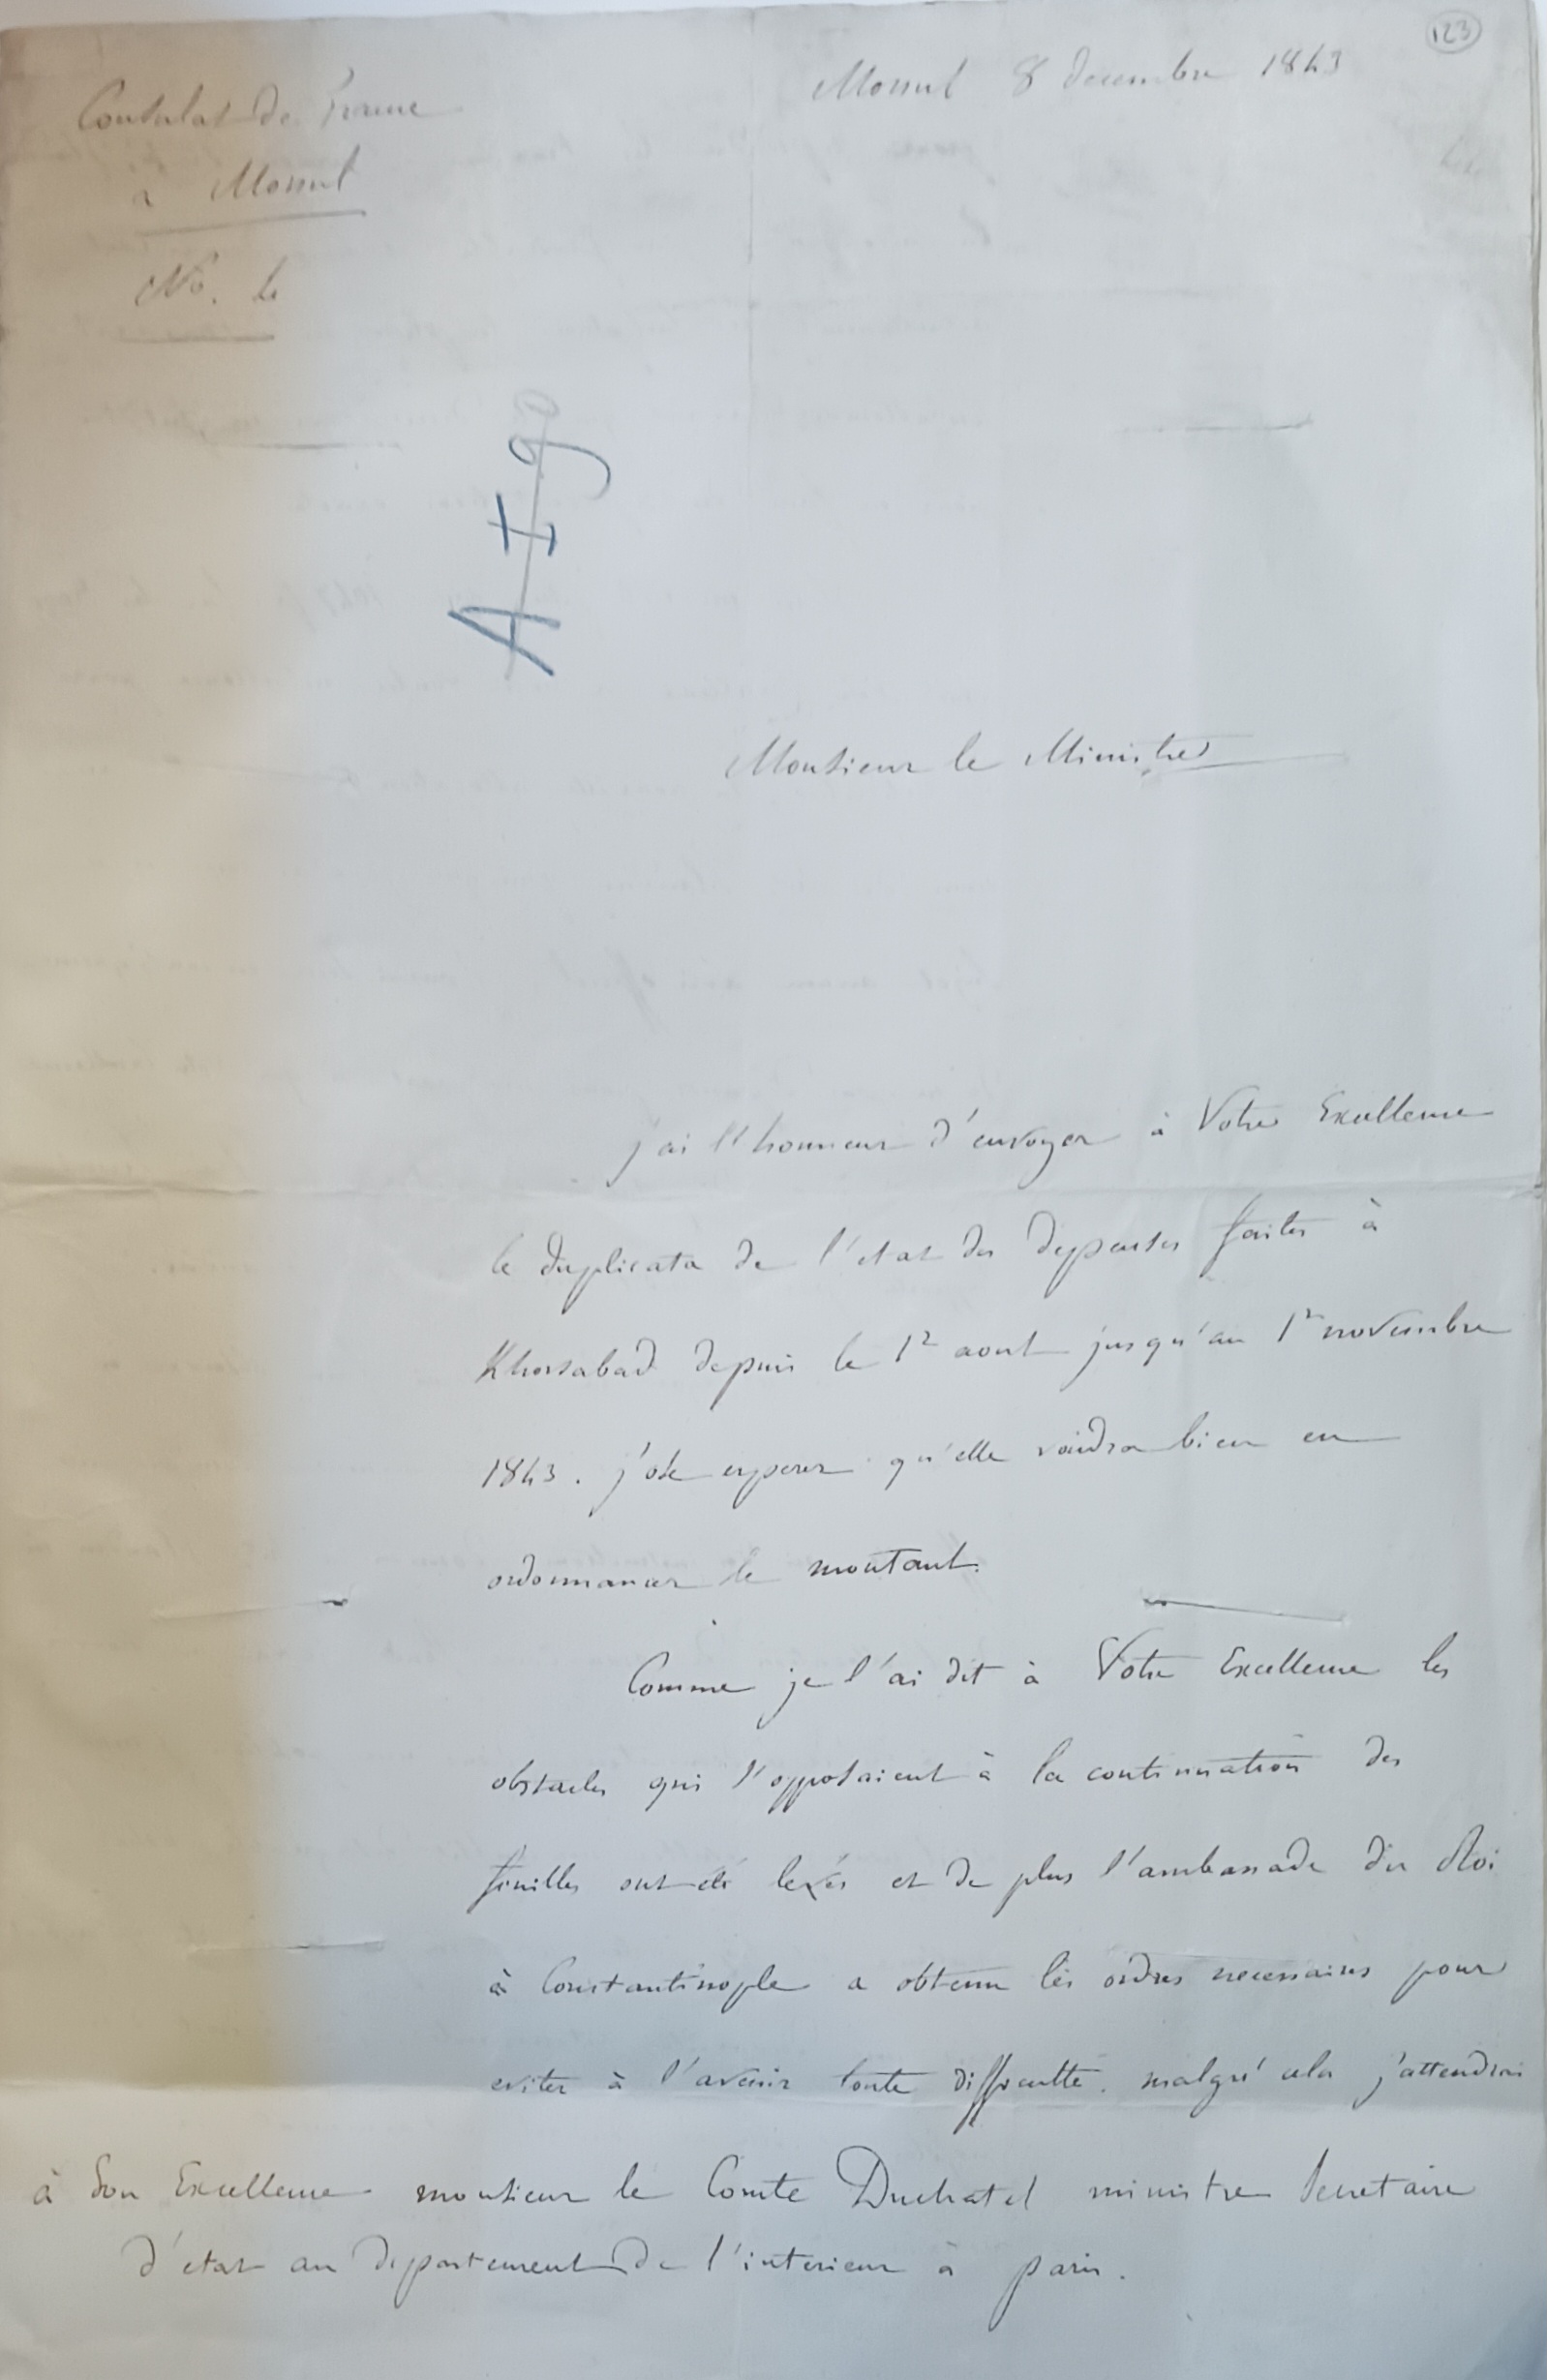 123
Mossul 8 decembre 1843
Consulat de France
à Mossul
No. 4
A I 9
Monsieur le Ministre
j'ai l'honneur d'envoyer à Votre Excellence
le duplicata de l'etat des depenses faites à
Khorsabad depuis le 1r aout jusqu'au 1r novembre
1843. j'ose esperer qu'elle voudra bien en
ordonnancer le montant.
Comme je l'ai dit à Votre Excellence les
obstacles qui s'opposaient à la continuation des
fouilles ont été levés et de plus l'ambassade du Roi
à Constantinople a obtenu les ordres necessaires pour
eviter à l'avenir toute difficulté. malgré cela j'attendrai
à Son Excellence monsieur le Comte Duchatel ministre Secretaire
d'etat au departement de l'interieur à paris.